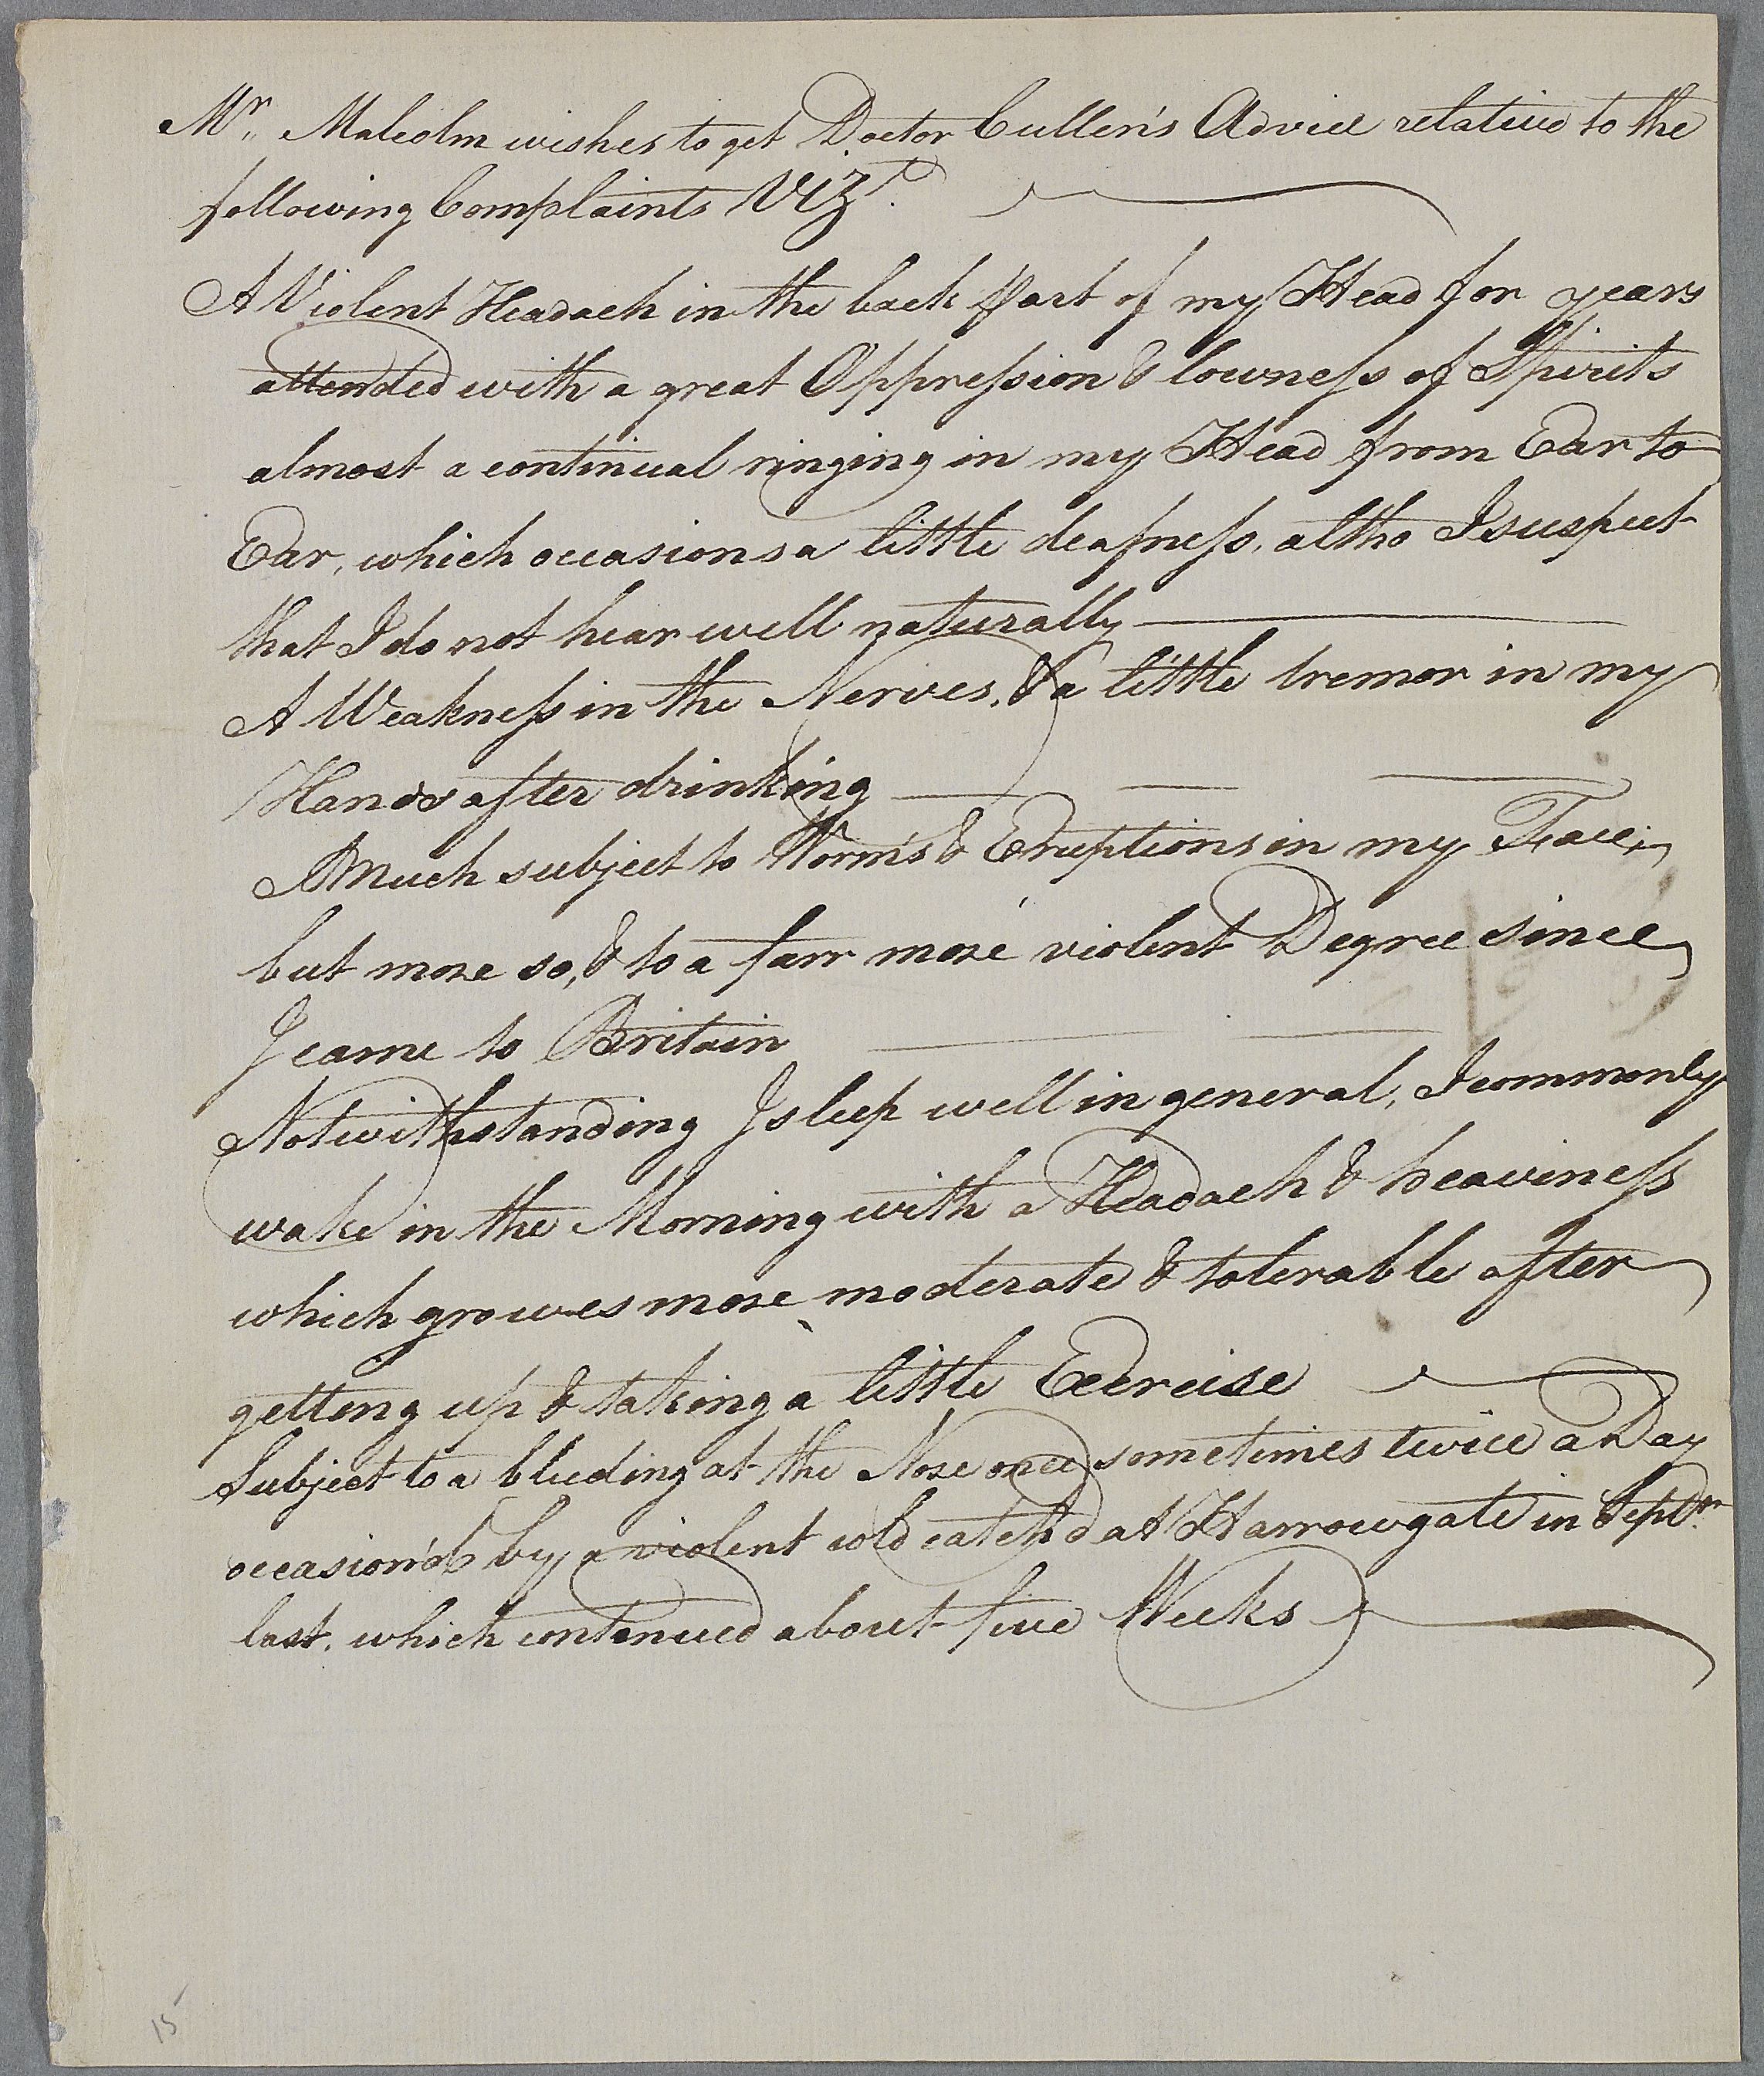 Mr. Malcolm wishes to get Doctor Cullen's Advice relative to the
following Complaints Vizt.
A Violent Headach in the back part of my Head for years
attended with a great Oppression & lowness of Spirits
almost a continual ringing in my Head from Ear to
Ear, which occasions a little deafness, altho I suspect
that I do not hear well naturally
A Weakness in the Nerves, & a little tremor in my
Hands after drinking
Much subject to Worms & Eruptions in my Face,
but more so, & to a farr more violent Degree since
I came to Britain
Notwithstanding I sleep well in general, I commonly
wake in the Morning with a Headach & heaviness
which growes more moderate & tolerable after
getting up & taking a little Exercise
Subject to a bleeding at the Nose once sometimes twice a Day
occasion'd by a violent cold catch'd at Harrowgate in Sepbr.
last, which continued about five Weeks
15